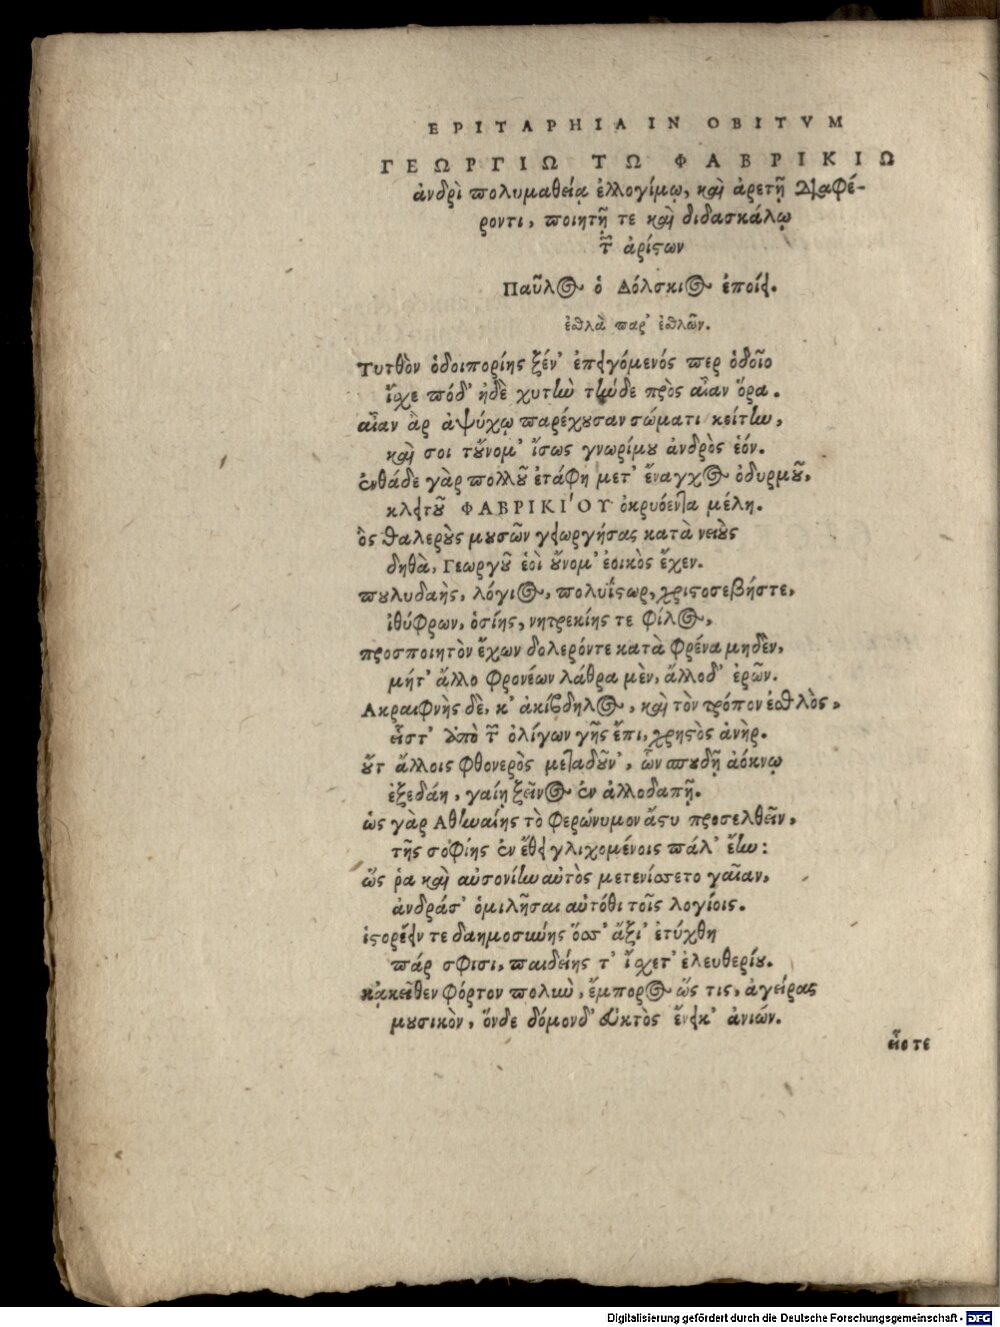 EPITAPHIA IN OBITVM
ΓΕΩΡΓΙΩ ΤΩ ΦΑΒΡΙΚΙΩ
ἀνδρὶ πολυμαθείᾳ ἐλλογίμῳ, καὶ ἀρετῇ διαφέ-
ροντι, ποιητῇ τε καὶ διδασκάλῳ
τῶν ἀρίστων
Παῦλος ὁ Δόλσκιος ἐποίει.
ἐσθλὰ παρ' ἐσθλῶν.
Τυτθὸν ὁδοιπορίης ξέν' ἐπειγόμενός περ ὁδοῖο
ἴσχε πόδ' ἠδὲ χυτὴν τήνδε πρὸς αἶαν ὅρα.
αἶαν ἂρ ἀψύχῳ παρέχουσαν σώματι κείτην,
καὶ σοι τοὔνομ' ἴσως γνωρίμου ἀνδρὸς ἑόν.
ἐνθάδε γὰρ πολλοῦ ἐτάφη μετ' ἔναγχος ὀδυρμοῦ,
κλειτοῦ ΦΑΒΡΙΚΙ'ΟΥ ὀκρυόεντα μέλη.
ὃς θαλεροὺς μουσῶν γεωργήσας κατὰ νειοὺς
δηθὰ, Γεωργοῦ ἑοῖ οὔνομ' ἐοικὸς ἔχεν.
πουλυδαὴς, λόγιος, πολυΐστωρ, χριστοσεβήστε,
ἰθύφρων, ὁσίης, νητρεκίης τε φίλος,
προσποιητὸν ἔχων δολερόντε κατὰ φρένα μηδὲν,
μήτ' ἄλλο φρονέων λάθρα μὲν, ἄλλοδ' ἐρῶν.
Ἀκραιφνὴς δὲ, κ' ἀκίβδηλος, καὶ τὸν τρόπον ἐσθλὸς,
εἷστ' ἀπὸ τῶν ὀλίγων γῆς ἔπι, χρηστὸς ἀνὴρ.
οὔτ ἄλλοις φθονερὸς μεταδοῦν', ὧν σπουδῇ ἀόκνῳ
ἐξεδάη, γαίῃ ξεῖνος ἐν ἀλλοδαπῇ.
ὡς γὰρ Ἀθηναίης τὸ φερώνυμον ἄστυ προσελθεῖν,
τῆς σοφίης ἐν ἔθει γλιχομένοις πάλ' ἔην:
ὣς ῥα καὶ αὐσονίην αὐτὸς μετενίσσετο γαῖαν,
ἀνδράσ' ὁμιλῆσαι αὐτόθι τοῖς λογίοις.
ἱστορέειν τε δαημοσύνης ὅσσ' ἄξι' ἐτύχθη
πάρ σφισι, παιδείης τ' ἴσχετ' ἐλευθερίου.
κἀκεῖθεν φόρτον πολὺν, ἔμπορος ὥς τις, ἀγείρας
μουσικὸν, ὅνδε δόμονδ' εὐκτὸς ἔνεικ' ἀνιών.
εἷοτε